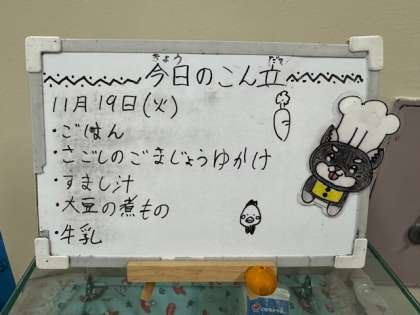 今日のこん立
きょう だて
11月19日(火)
・ごはん
・さごしのごまじょうゆかけ
・すまし汁
・大豆の煮もの
・牛乳